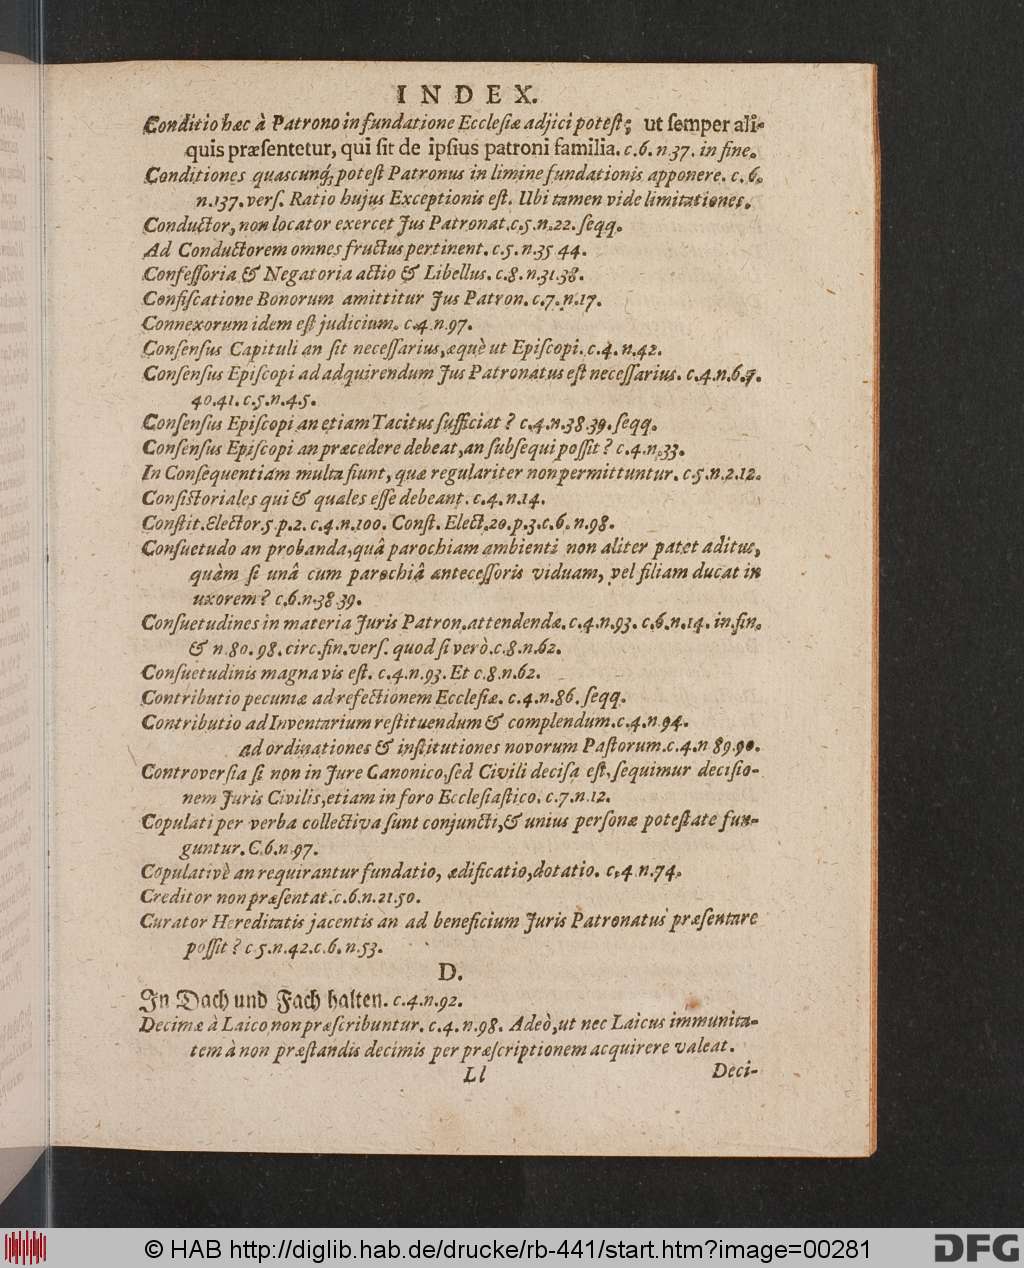 INDEX.
Conditio hæc à Patrono in fundatione Ecclesiæ adjici potest; ut semper ali-
quis præsentetur, qui sit de ipsius patroni familia. c.6. n 37. in fine.
Conditiones quascunq; potest Patronus in limine fundationis apponere. c. 6.
n.137. vers. Ratio hujus Exceptionis est. Ubi tamen vide limitationes.
Conductor, non locator exercet Jus Patronat. c.5.n.22. seqq.
Ad Conductorem omnes fructus pertinent. c.5. n.35 44.
Confessoria & Negatoria actio & Libellus. c.8. n.31.38.
Confiscatione Bonorum amittitur Jus Patron. c.7. n.17.
Connexorum idem est judicium. c.4 n.97.
Consensus Capituli an sit necessarius, æquè ut Episcopi. c.4. n.42.
Consensus Episcopi ad adquirendum Jus Patronatus est necessarius. c.4.n.6.7.
40.41. c.5.n.45.
Consensus Episcopi an etiam Tacitus sufficiat? c.4.n.38.39. seqq.
Consensus Episcopi an præcedere debeat, an subsequi possit? c.4.n.33.
In Consequentiam multa fiunt, quæ regulariter non permittuntur. c.5.n.2.12.
Consistoriales qui & quales esse debeant. c.4. n.14.
Constit. Elector. 5 p.2. c.4.n.100. Const. Elect. 20. p.3.c.6. n.98.
Consuetudo an probanda, quâ parochiam ambienti non aliter patet aditus,
quàm si unâ cum parochiâ antecessoris viduam, vel filiam ducat in
uxorem? c.6.n.38.39.
Consuetudines in materia Juris Patron. attendendæ. c.4.n.93. c.6.n.14. in fin.
& n.80.98. circ. fin. vers. quod si verò. c.8.n.62.
Consuetudinis magna vis est. c.4.n.93. Et c.8.n.62.
Contributio pecuniæ ad refectionem Ecclesiæ. c.4.n.86. seqq.
Contributio ad Inventarium restituendum & complendum. c.4.n 94.
ad ordinationes & institutiones novorum Pastorum. c.4.n 89.90.
Controversia si non in Jure Canonico, sed Civili decisa est, sequimur decisio-
nem Juris Civilis, etiam in foro Ecclesiastico. c.7.n.12.
Copulati per verba collectiva sunt conjuncti, & unius personæ potestate fun-
guntur. C.6.n.97.
Copulativè an requirantur fundatio, ædificatio, dotatio. c.4 n.74.
Creditor non præsentat. c.6.n.21.50.
Curator Hereditatis jacentis an ad beneficium Juris Patronatus præsentare
possit? c 5.n.42. c.6. n.53.
D.
In Dach und Fach halten. c.4.n.92.
Decimæ à Laico non præscribuntur. c.4. n.98. Adeò, ut nec Laicus immunita-
tem à non præstandis decimis per præscriptionem acquirere valeat.
Ll
Deci-
© HAB http://diglib.hab.de/drucke/rb-441/start.htm?image=00281
DFG